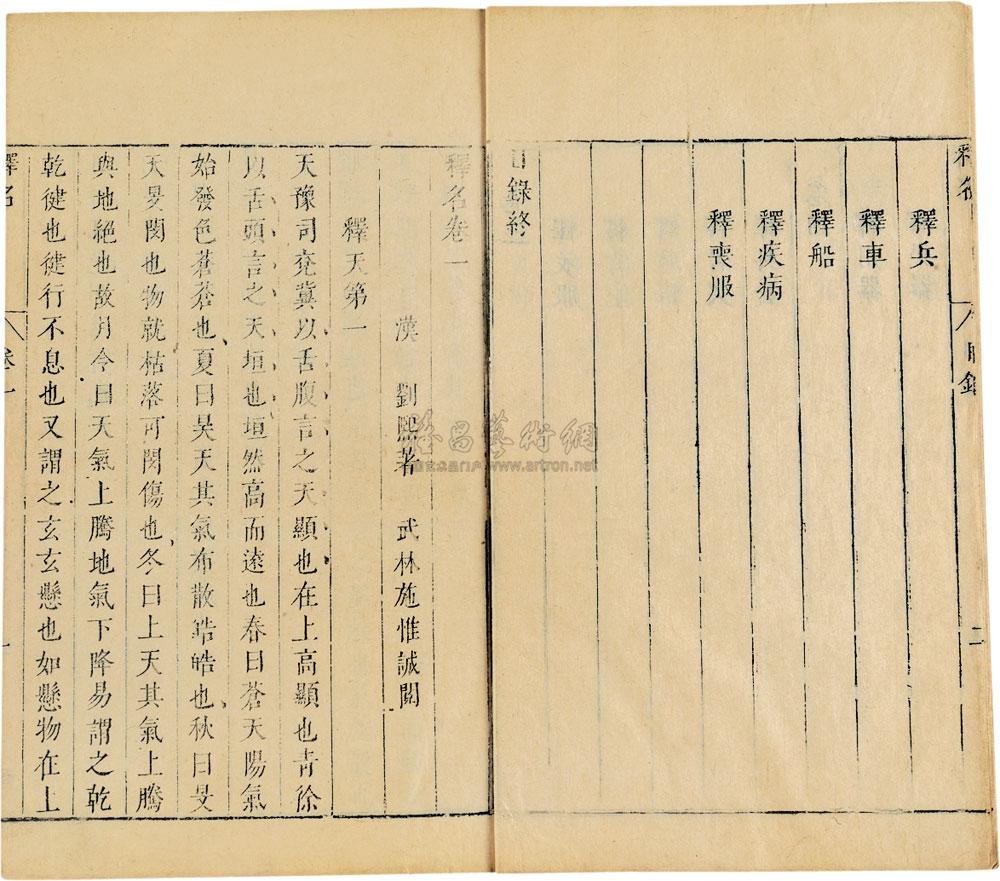 釋名
目錄
二
釋兵
釋車
釋船
釋疾病
釋喪服
目錄終
釋名卷一
漢 劉熙著 武林施惟誠閱
釋天第一
天豫司兗冀以舌腹言之天顯也在上高顯也青徐
以舌頭言之天垣也垣然高而遠也春曰蒼天陽氣
始發色蒼蒼也夏曰昊天其氣布散皓皓也秋曰旻
天旻閔也物就枯落可閔傷也冬曰上天其氣上騰
與地絕也故月令曰天氣上騰地氣下降易謂之乾
乾健也健行不息也又謂之玄玄懸也如懸物在上
釋名
卷一
一
雅昌藝術網
www.artron.net